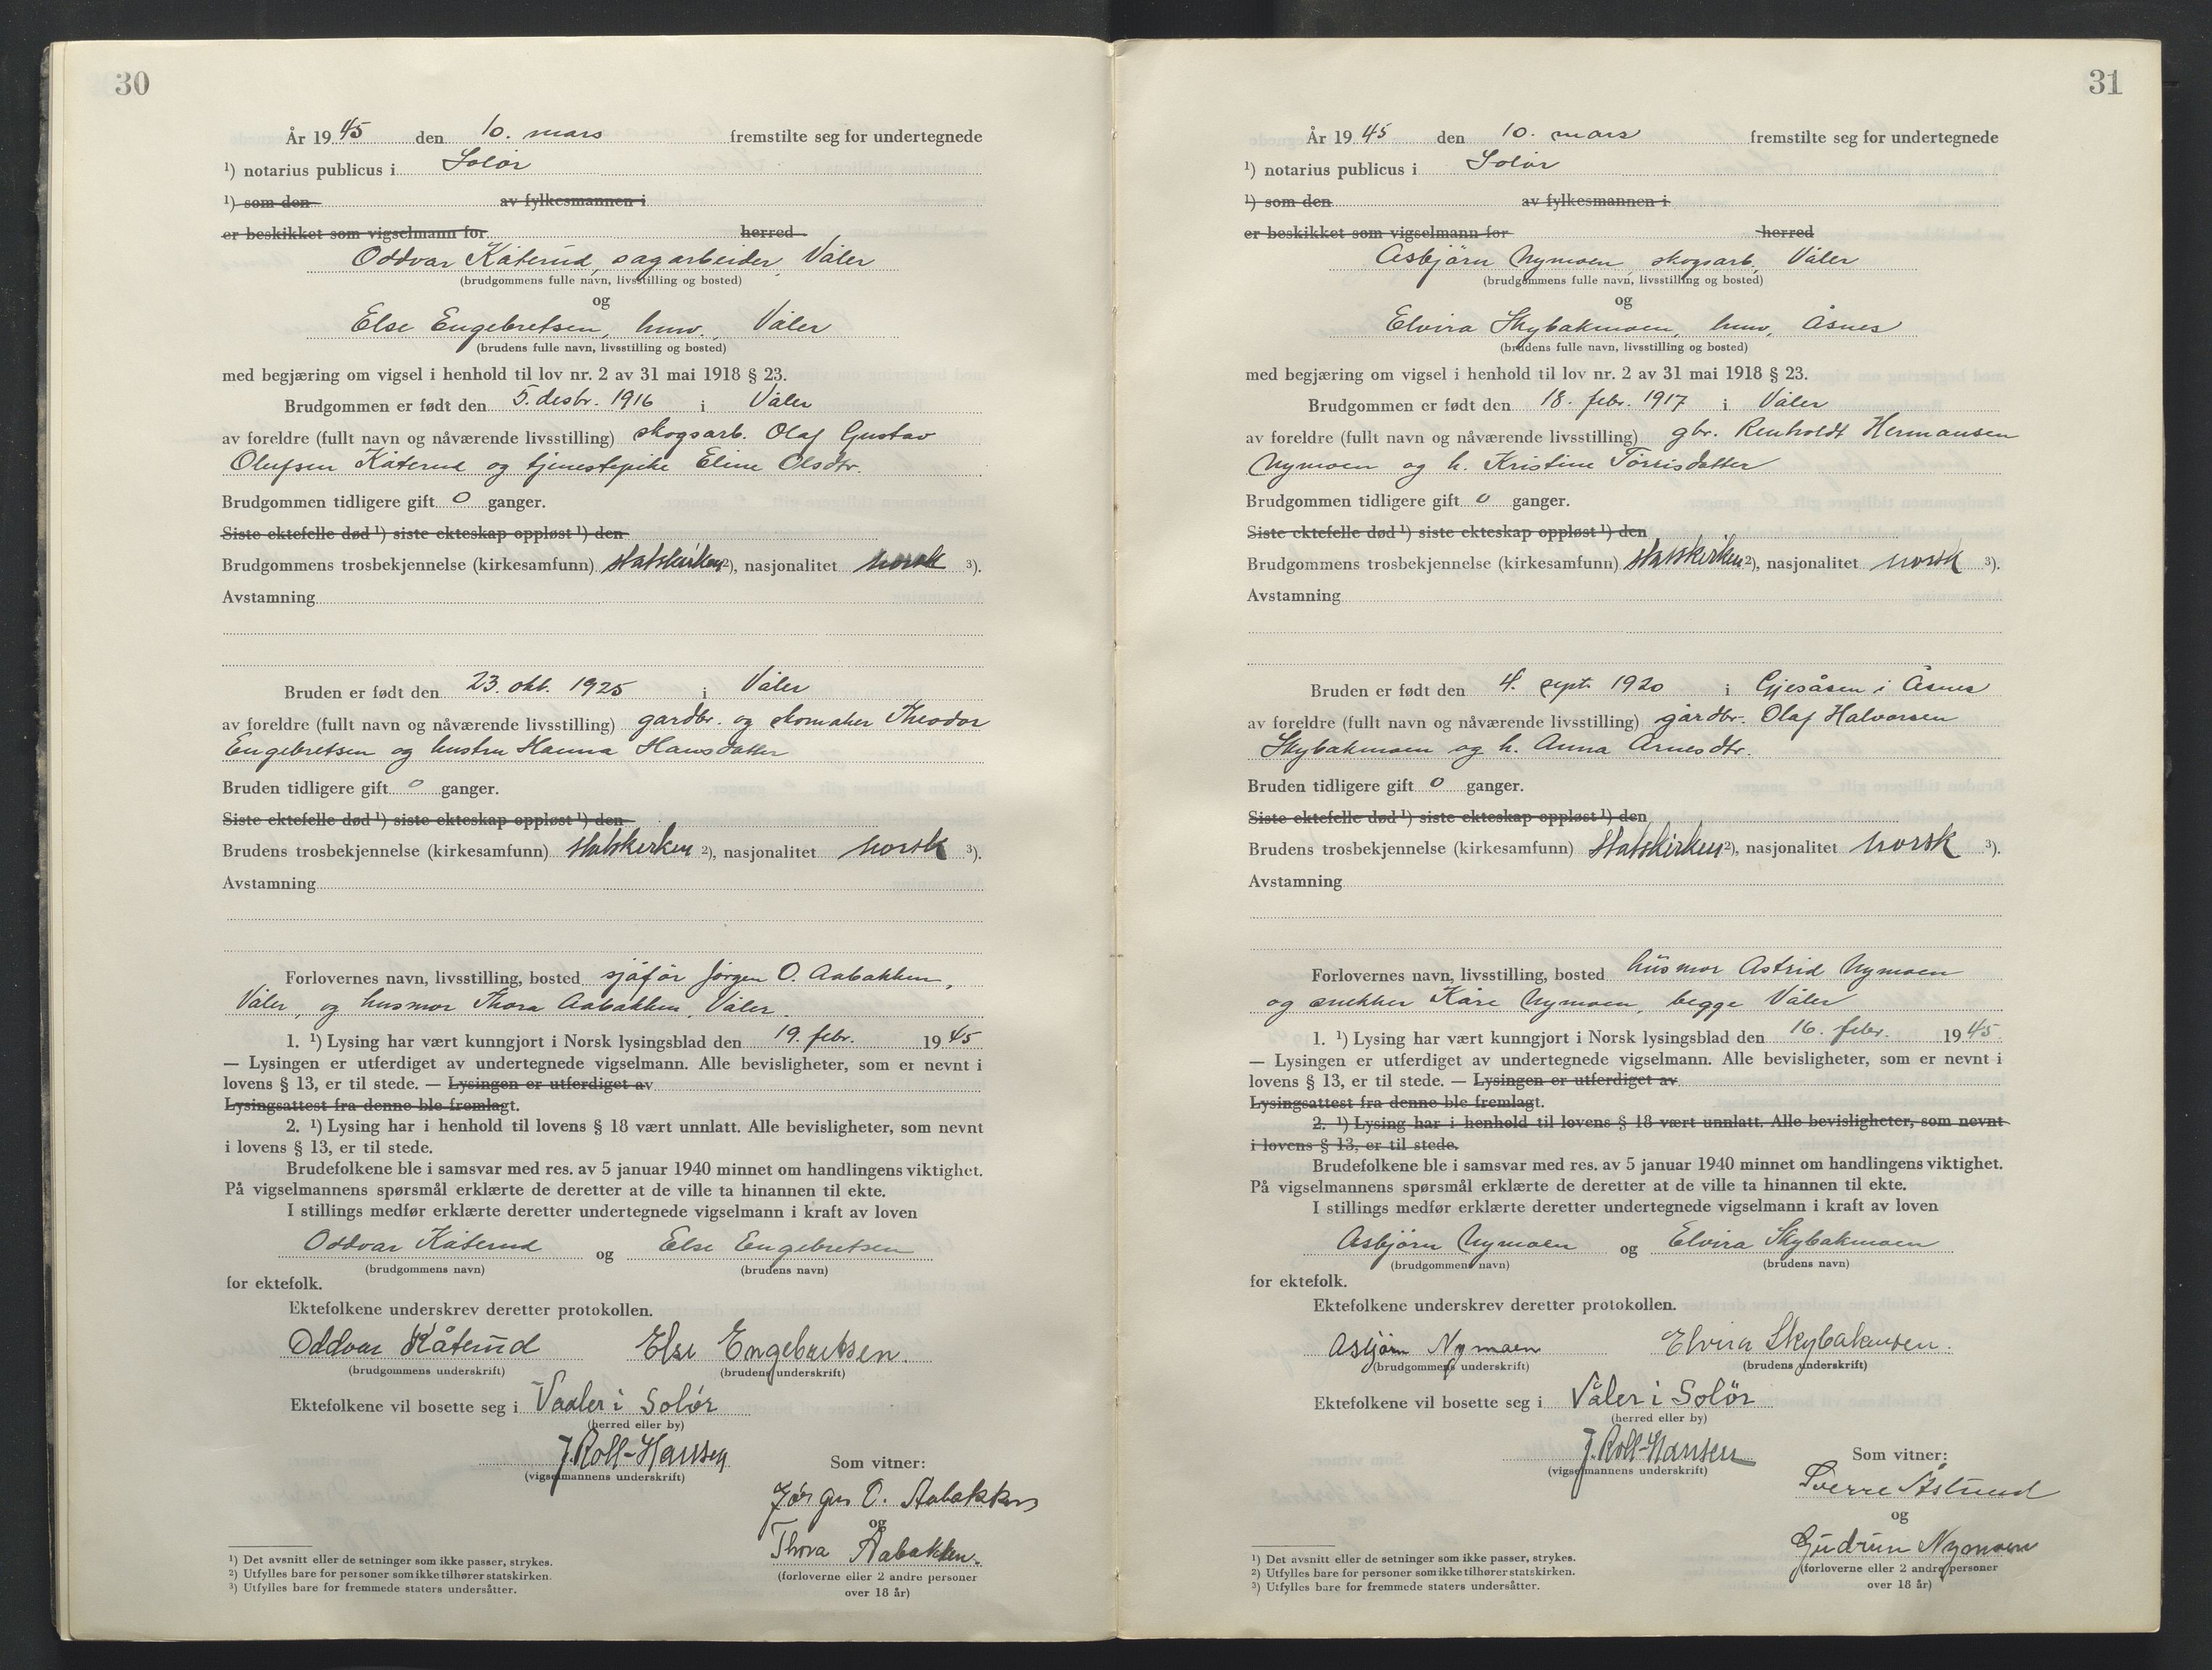 30
År 1945 den 10. mars fremstilte seg for undertegnede
¹) notarius publicus i Solør
¹) som den av fylkesmannen i
er beskikket som vigselmann for herred
Oddvar Kåterud, sagarbeider, Våler
(brudgommens fulle navn, livsstilling og bosted)
og
Else Engebretsen, husv., Våler
(brudens fulle navn, livsstilling og bosted)
med begjæring om vigsel i henhold til lov nr. 2 av 31 mai 1918 § 23.
Brudgommen er født den 5. desbr. 1916 i Våler
av foreldre (fullt navn og nåværende livsstilling) skogsarb. Olaf Gustav
Olufsen Kåterud og tjenestepike Eline Olsdtr.
Brudgommen tidligere gift 0 ganger.
Siste ektefelle død ¹) siste ekteskap oppløst ¹) den
Brudgommens trosbekjennelse (kirkesamfunn) statskirken ²), nasjonalitet norsk ³).
Avstamning
Bruden er født den 23. okt. 1925 i Våler
av foreldre (fullt navn og nåværende livsstilling) gardbr. og skomaker Theodor
Engebretsen og hustru Hanna Hansdatter
Bruden tidligere gift 0 ganger.
Siste ektefelle død ¹) siste ekteskap oppløst ¹) den
Brudens trosbekjennelse (kirkesamfunn) statskirken ²), nasjonalitet norsk ³).
Avstamning
Forlovernes navn, livsstilling, bosted sjåfør Jørgen O. Aabakken,
Våler, og husmor Thora Aabakken, Våler.
1. ¹) Lysing har vært kunngjort i Norsk lysingsblad den 19. febr. 1945
— Lysingen er utferdiget av undertegnede vigselmann. Alle bevisligheter, som er nevnt i
lovens § 13, er til stede. — Lysingen er utferdiget av
Lysingsattest fra denne ble fremlagt.
2. ¹) Lysing har i henhold til lovens § 18 vært unnlatt. Alle bevisligheter, som nevnt
i lovens § 13, er til stede.
Brudefolkene ble i samsvar med res. av 5 januar 1940 minnet om handlingens viktighet.
På vigselmannens spørsmål erklærte de deretter at de ville ta hinannen til ekte.
I stillings medfør erklærte deretter undertegnede vigselmann i kraft av loven
Oddvar Kåterud og Else Engebretsen
(brudgommens navn) (brudens navn)
for ektefolk.
Ektefolkene underskrev deretter protokollen.
Oddvar Kåterud Else Engebretsen.
(brudgommens underskrift) (brudens underskrift)
Ektefolkene vil bosette seg i Vaaler i Solør
(herred eller by)
J. Roll-Hansen
(vigselmannens underskrift)
Som vitner:
Jørgen O. Aabakken
og
Thora Aabakken.
(forloverne eller 2 andre personer
over 18 år)
¹) Det avsnitt eller de setninger som ikke passer, strykes.
²) Utfylles bare for personer som ikke tilhører statskirken.
³) Utfylles bare for fremmede staters undersåtter.
31
År 1945 den 10. mars fremstilte seg for undertegnede
¹) notarius publicus i Solør
¹) som den av fylkesmannen i
er beskikket som vigselmann for herred
Asbjörn Nymoen, skogsarb., Våler
(brudgommens fulle navn, livsstilling og bosted)
og
Elvira Skybakmoen, husv., Åsnes
(brudens fulle navn, livsstilling og bosted)
med begjæring om vigsel i henhold til lov nr. 2 av 31 mai 1918 § 23.
Brudgommen er født den 18. febr. 1917 i Våler
av foreldre (fullt navn og nåværende livsstilling) gbr. Renholdt Hermansen
Nymoen og h. Kristine Torrisdatter
Brudgommen tidligere gift 0 ganger.
Siste ektefelle død ¹) siste ekteskap oppløst ¹) den
Brudgommens trosbekjennelse (kirkesamfunn) statskirken ²), nasjonalitet norsk ³).
Avstamning
Bruden er født den 4. sept. 1920 i Gjesåsen i Åsnes
av foreldre (fullt navn og nåværende livsstilling) gårdbr. Olaf Halvorsen
Skybakmoen og h. Anna Arnesdtr.
Bruden tidligere gift 0 ganger.
Siste ektefelle død ¹) siste ekteskap oppløst ¹) den
Brudens trosbekjennelse (kirkesamfunn) statskirken ²), nasjonalitet norsk ³).
Avstamning
Forlovernes navn, livsstilling, bosted husmor Astrid Nymoen
og snekker Kåre Nymoen, begge Våler
1. ¹) Lysing har vært kunngjort i Norsk lysingsblad den 16. febr. 1945.
— Lysingen er utferdiget av undertegnede vigselmann. Alle bevisligheter, som er nevnt i
lovens § 13, er til stede. — Lysingen er utferdiget av
Lysingsattest fra denne ble fremlagt.
2. ¹) Lysing har i henhold til lovens § 18 vært unnlatt. Alle bevisligheter, som nevnt
i lovens § 13, er til stede.
Brudefolkene ble i samsvar med res. av 5 januar 1940 minnet om handlingens viktighet.
På vigselmannens spørsmål erklærte de deretter at de ville ta hinannen til ekte.
I stillings medfør erklærte deretter undertegnede vigselmann i kraft av loven
Asbjørn Nymoen og Elvira Skybakmoen
(brudgommens navn) (brudens navn)
for ektefolk.
Ektefolkene underskrev deretter protokollen.
Asbjørn Nymoen Elvira Skybakmoen.
(brudgommens underskrift) (brudens underskrift)
Ektefolkene vil bosette seg i Våler i Solör
(herred eller by)
J. Roll-Hansen
(vigselmannens underskrift)
Som vitner:
Sverre Åslund
og
Gudrun Nymoen
(forloverne eller 2 andre personer
over 18 år)
¹) Det avsnitt eller de setninger som ikke passer, strykes.
²) Utfylles bare for personer som ikke tilhører statskirken.
³) Utfylles bare for fremmede staters undersåtter.